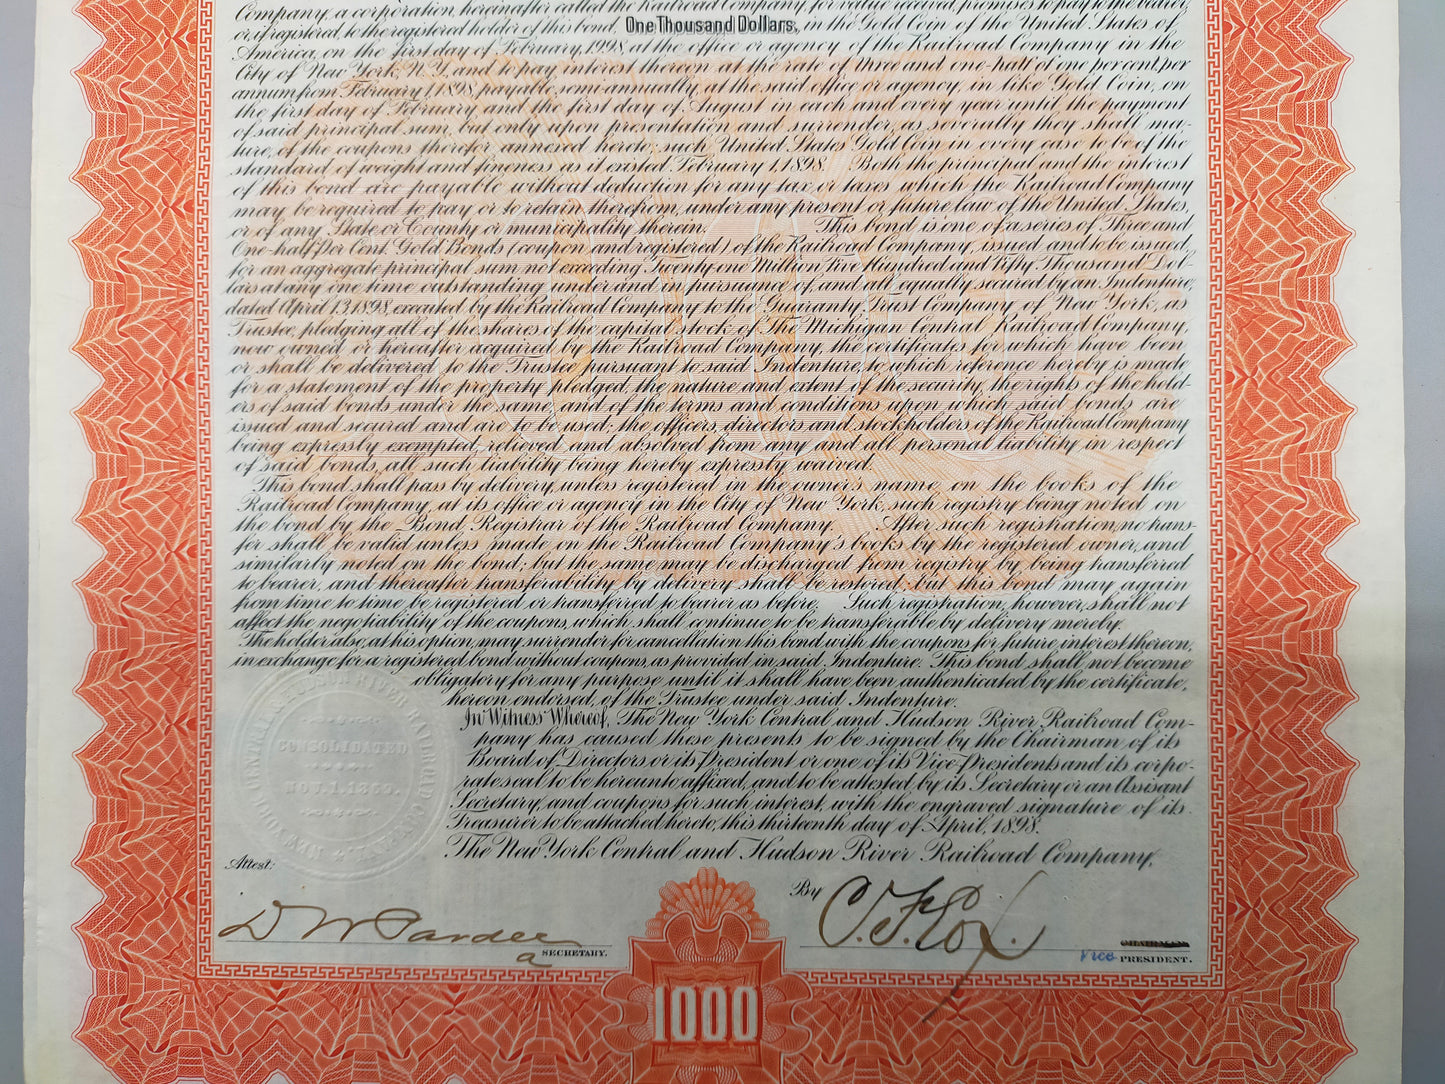 Company, a corporation, hereinafter called the Railroad Company, for value received, promises to pay to the bearer,
or if registered, to the registered holder of this bond, One Thousand Dollars, in the Gold Coin of the United States of
America, on the first day of February, 1998, at the office or agency of the Railroad Company in the
City of New York, N.Y., and to pay interest thereon at the rate of three and one-half of one per cent, per
annum from February 1, 1898, payable semi-annually, at the said office or agency, in like Gold Coin, on
the first day of February and the first day of August in each and every year until the payment
of said principal sum, but only upon presentation and surrender, as severally they shall ma-
ture, of the coupons therefor annexed hereto; such United States Gold Coin in every case to be of the
standard of weight and fineness as it existed February 1, 1898. Both the principal and the interest
of this bond are payable without deduction for any tax or taxes which the Railroad Company
may be required to pay or to retain therefrom, under any present or future law of the United States,
or of any State or County or municipality therein. This bond is one of a series of Three and
One-half Per Cent. Gold Bonds (coupon and registered) of the Railroad Company, issued and to be issued,
for an aggregate principal sum not exceeding Twenty-one Million Five Hundred and Fifty Thousand Dol-
lars at any one time outstanding under and in pursuance of, and all equally secured by an Indenture,
dated April 13, 1898, executed by the Railroad Company to the Guaranty Trust Company of New York, as
Trustee, pledging all of the shares of the capital stock of The Michigan Central Railroad Company,
now owned or hereafter acquired by the Railroad Company, the certificates for which have been
or shall be delivered to the Trustee pursuant to said Indenture, to which reference hereby is made
for a statement of the property pledged, the nature and extent of the security, the rights of the hold-
ers of said bonds under the same, and of the terms and conditions upon which said bonds are
issued and secured and are to be used; the officers, directors and stockholders of the Railroad Company
being expressly exempted, relieved and absolved from any and all personal liability in respect
of said bonds, all such liability being hereby expressly waived.
This bond shall pass by delivery, unless registered in the owner's name on the books of the
Railroad Company, at its office or agency in the City of New York, such registry being noted on
the bond by the Bond Registrar of the Railroad Company. After such registration, no trans-
fer shall be valid unless made on the Railroad Company's books by the registered owner, and
similarly noted on the bond; but the same may be discharged from registry by being transferred
to bearer, and thereafter transferability by delivery shall be restored; but this bond may again
from time to time be registered or transferred to bearer as before. Such registration, however, shall not
affect the negotiability of the coupons, which shall continue to be transferable by delivery merely.
The holder also, at his option, may surrender for cancellation this bond with the coupons for future interest thereon,
in exchange for a registered bond without coupons, as provided in said Indenture. This bond shall not become
obligatory for any purpose until it shall have been authenticated by the certificate,
hereon endorsed, of the Trustee under said Indenture.
In Witness Whereof, The New York Central and Hudson River Railroad Com-
pany has caused these presents to be signed by the Chairman of its
Board of Directors or its President or one of its Vice-Presidents and its corpo-
rate seal to be hereunto affixed, and to be attested by its Secretary or an Assistant
Secretary, and coupons for such interest, with the engraved signature of its
Treasurer to be attached hereto, this thirteenth day of April, 1898.
The New York Central and Hudson River Railroad Company,
NEW YORK CENTRAL & HUDSON RIVER RAILROAD COMPANY
CONSOLIDATED
NOV. 1. 1869.
Attest:
By
D W Pardee
a SECRETARY.
C. F. Cox.
CHAIRMAN
Vice PRESIDENT.
1000